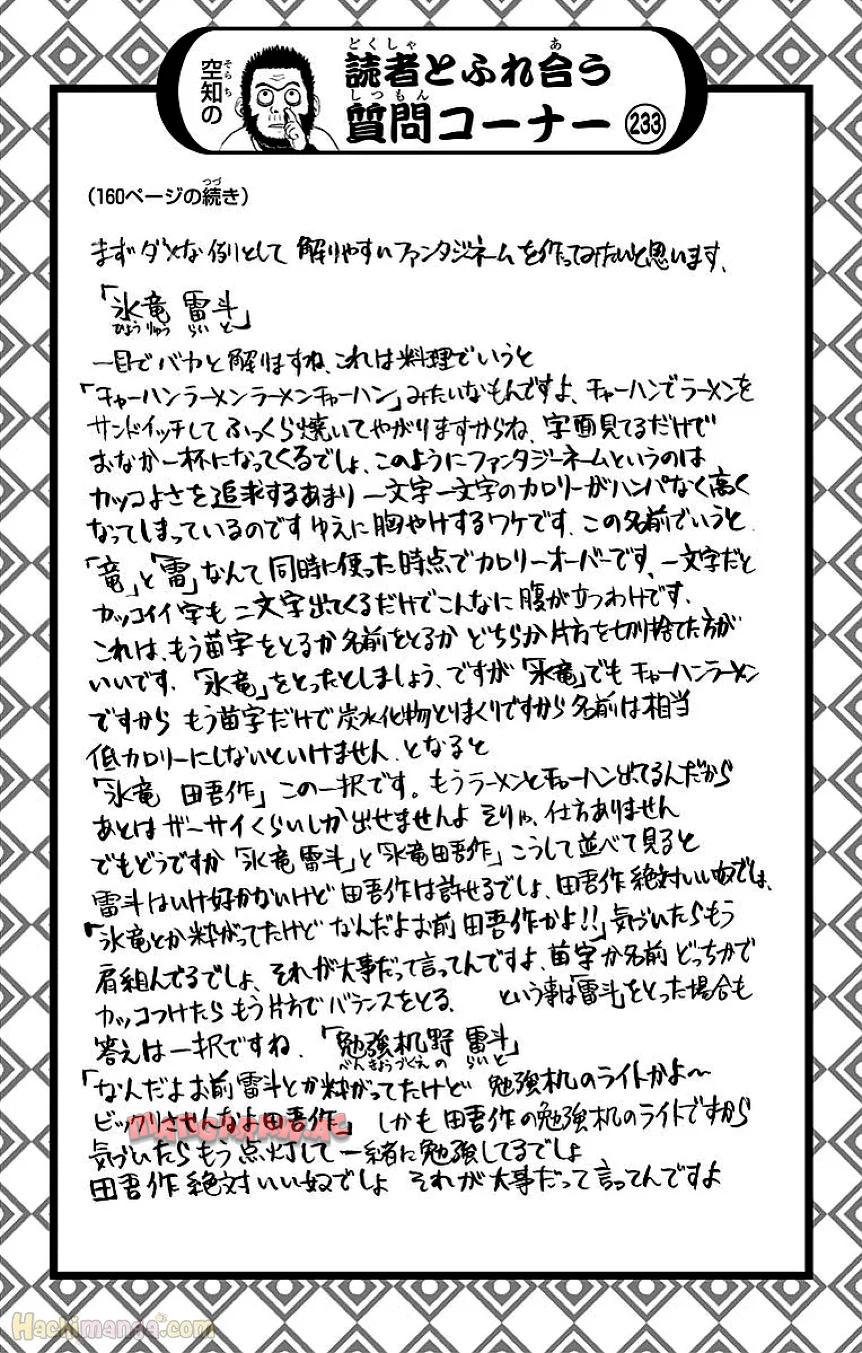 空知の
読者とふれ合う
質問コーナー 233
(160ページの続き)
まずダメな例として 解りやすいファンタジーネームを作ってみたいと思います、
「氷竜 雷斗」
ひょうりゅう らいと
一目でバカと解りますね、これは料理でいうと
「チャーハンラーメンラーメンチャーハン」みたいなもんですよ、チャーハンでラーメンを
サンドイッチしてふっくら焼いてやがりますからね、字面見てるだけで
おなか一杯になってくるでしょ、このようにファンタジーネームというのは
カッコよさを追求するあまり一文字一文字のカロリーがハンパなく高く
なってしまっているのです ゆえに胸やけするワケです、この名前でいうと
「竜」と「雷」なんて同時に使った時点でカロリーオーバーです、一文字だと
カッコイイ字も二文字出てくるだけでこんなに腹が立つわけです、
これは、もう苗字をとるか名前をとるか どちらか片方を切り捨てた方が
いいです、「氷竜」をとったとしましょう、ですが「氷竜」でもチャーハンラーメン
ですから もう苗字だけで炭水化物とりまくりですから名前は相当
低カロリーにしないといけません、となると
「氷竜 田吾作」この一択です。もうラーメンとチャーハン出てるんだから
あとはザーサイくらいしか出せませんよ そりゃ、仕方ありません
でもどうですか「氷竜雷斗」と「氷竜田吾作」こうして並べて見ると
雷斗はいけ好かないけど田吾作は許せるでしょ、田吾作絶対いい奴では、
「氷竜とか粋がってたけど なんだよお前 田吾作かよ!!」気づいたらもう
肩組んでるでしょ、それが大事だって言ってんですよ、苗字か名前どっちかで
カッコつけたらもう片方でバランスをとる、 という事は「雷斗」をとった場合も
答えは一択ですね、「勉強机野 雷斗」
べんきょうづくえの らいと
「なんだよお前雷斗とか粋がってたけど 勉強机のライトかよ〜
ビックリさせんなよ田吾作」 しかも田吾作の勉強机のライトですから
気づいたらもう点灯して一緒に勉強してるでしょ
田吾作絶対いい奴でしょ それが大事だって言ってんですよ
Hachimanga.com